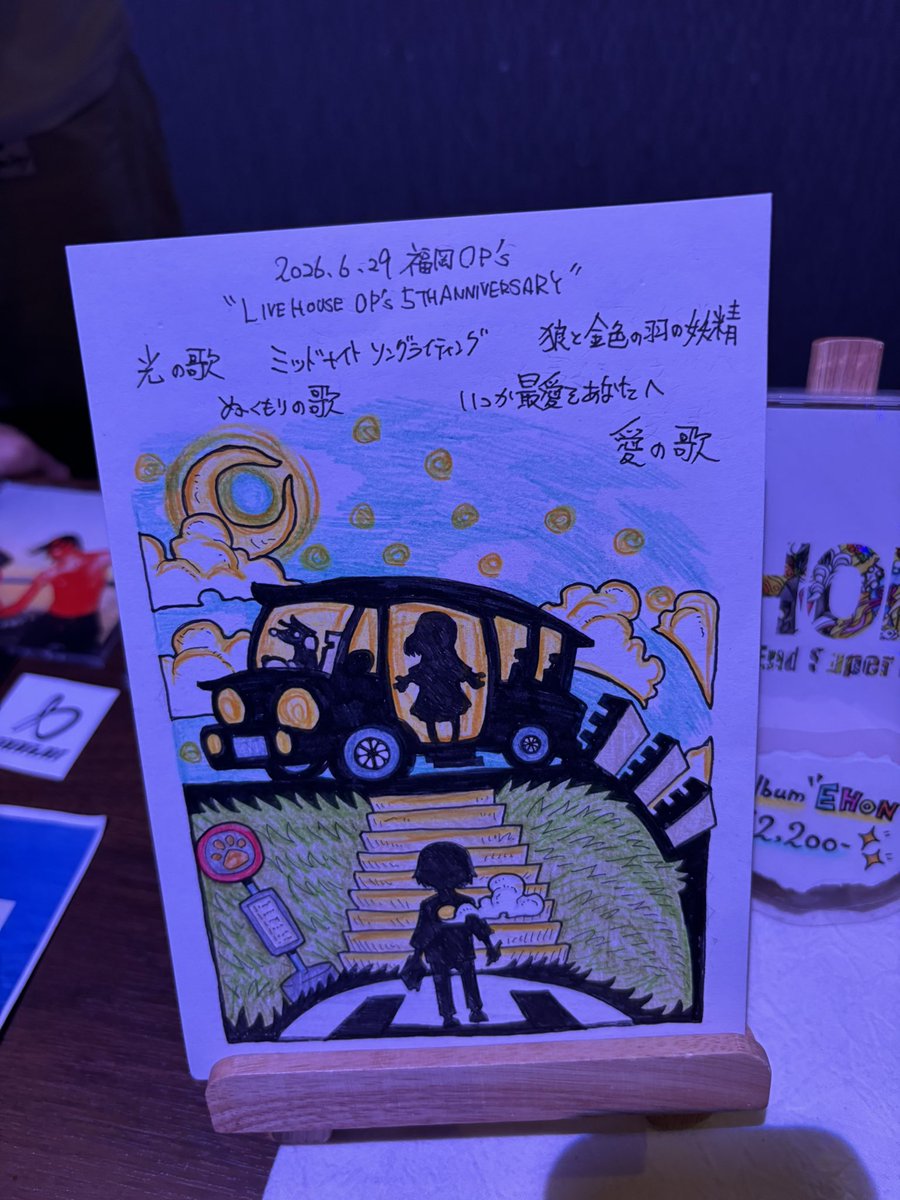 2026.6.29 福岡OP's
"LIVE HOUSE OP's 5TH ANNIVERSARY"
光の歌 ミッドナイトソングライティング 狼と金色の羽の妖精
ぬくもりの歌 いつか最愛をあなたへ
愛の歌
End Super
Album "EHON
2,200-